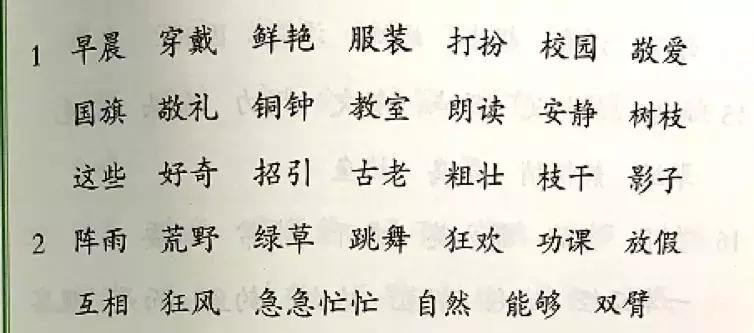 1 早晨 穿戴 鲜艳 服装 打扮 校园 敬爱
国旗 敬礼 铜钟 教室 朗读 安静 树枝
这些 好奇 招引 古老 粗壮 枝干 影子
2 阵雨 荒野 绿草 跳舞 狂欢 功课 放假
互相 狂风 急急忙忙 自然 能够 双臂